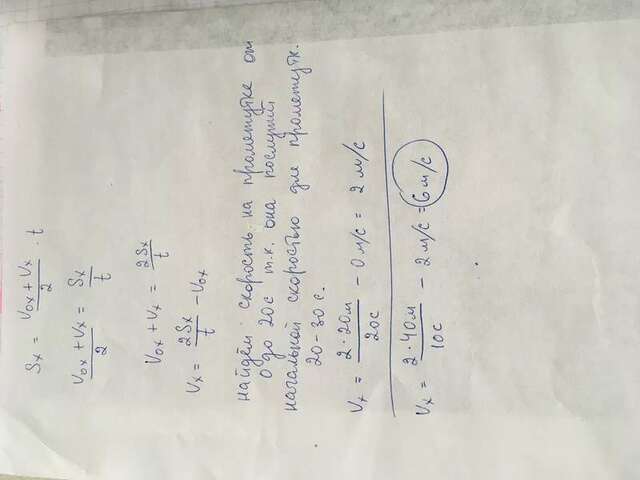 Sx = V0x + Vx / 2 · t
V0x + Vx / 2 = Sx / t
V0x + Vx = 2Sx / t
Vx = 2Sx / t - V0x
найдём скорость на промежутке от
0 до 20с т.к. она послужит
начальной скоростью для промежутк.
20-30 с.
Vx = 2·20м / 20с - 0 м/с = 2 м/с
Vx = 2·40м / 10с - 2 м/с = 6 м/с